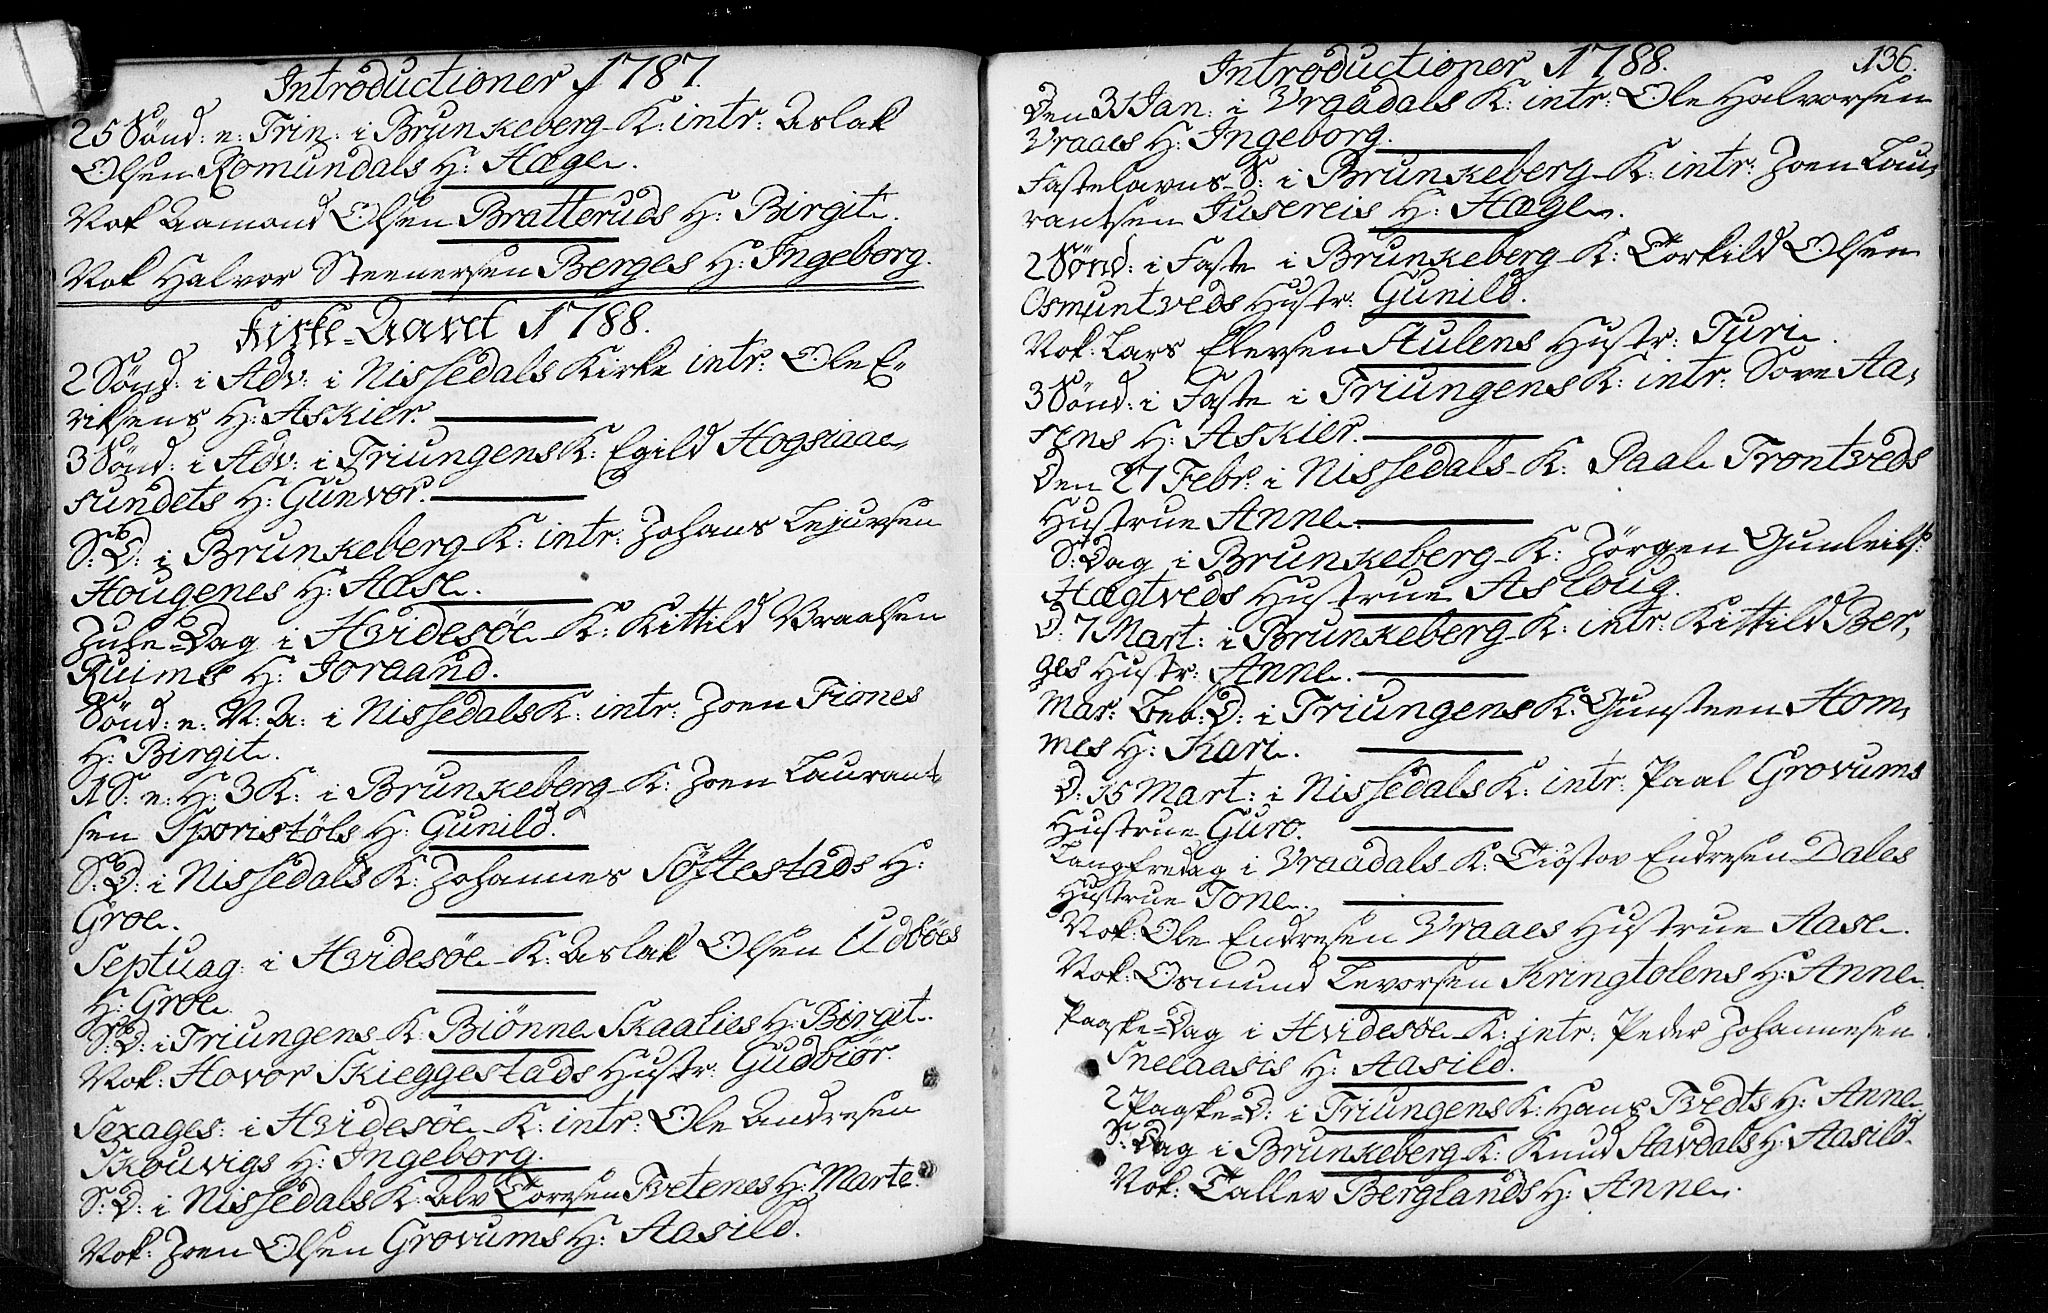 Introductioner 1787.
25 Sønd: e: Trin: i Brunkeberg K: intr: Aslak
Olsen Romundals H: Hæge.
Nok Aamond Olsen Bratteruds H: Birgit.
Nok Halvor Steenersen Berges H: Ingeborg.
Kirke-Aaret 1788.
2 Sønd: i Adv: i Nissedals Kirke intr: Ole E-
riksens H: Askier.
3 Sønd: i Adv: i Triungens K: Egild Hogsiaae-
sundets H: Gunvor.
S: D: i Brunkeberg K: intr: Johans Lejursen
Hougenes H: Aase.
Jule-Dag i Hvidesøe K: Kittild Vraalsen
Quims H: Joraand.
Sønd: e: N: A: i Nissedals K: intr: Joen Fiones
H: Birgit.
1 S: e: H: 3 K: i Brunkeberg K: Joen Laurant-
sen Sporistøls H: Gunild.
S: D: i Nissedals K: Johannes Søftestads H:
Groe.
Septuag: i Hvidesøe K: Aslak Olsen Udbøes
H: Groe.
S: D: i Triungens K: Biønne Skaalies H: Birgit.
Nok: Hovor Skieggestads Hustr: Gudbiør.
Sexages: i Hvidesøe K: intr: Ole Andresen
Skouvigs H: Ingeborg.
S: D: i Nissedals K: Alv Toresen Tvetenes H: Marte.
Nok: Joen Olsen Grovums H: Aasild.
Introductioner 1788. 136.
Den 3 Jan: i Vraadals K: intr: Ole Halvorsen
Vraaes H: Ingeborg.
Fastelavns-S: i Brunkeberg K: intr: Joen Lau-
rantsen Jusereis H: Hæge.
2 Sønd: i Faste i Brunkeberg K: Torkild Olsen
Osmuntveds Hustr: Gunild.
Nok: Lars Elevsen Aulens Hustr: Turi.
3 Sønd: i Faste i Triungens K: intr: Sove Aa-
sens H: Askier.
Den 27 Febr: i Nissedals K: Paal Trontveds
Hustrue Anne.
S: Dag i Brunkeberg K: Jørgen Gunleiks:
Hægtveds Hustrue Asloug.
D: 7 Mart: i Brunkeberg K: intr: Kittild Ber-
ges Hustr: Anne.
Mar: Beb: D: i Triungens K: Gunsteen Hom-
mes H: Kari.
D: 15 Mart: i Nissedals K: intr: Paal Grovums
Hustrue Guro.
Langfredag i Vraadals K: Tiøstov Endresen Dales
Hustrue Tone.
Nok: Ole Endresen Vraaes Hustrue Aase.
Nok: Osmund Levorsen Kringtolens H: Anne.
Paaske-Dag i Hvidesøe K: intr: Peder Johannesen
Snelaasis H: Aasild.
2 Paaske-D: i Triungens K: Hans Tvedts H: Anne
S: Dag i Brunkeberg K: Knud Aavdals H: Aasild.
Nok: Tallev Berglands H: Anne.